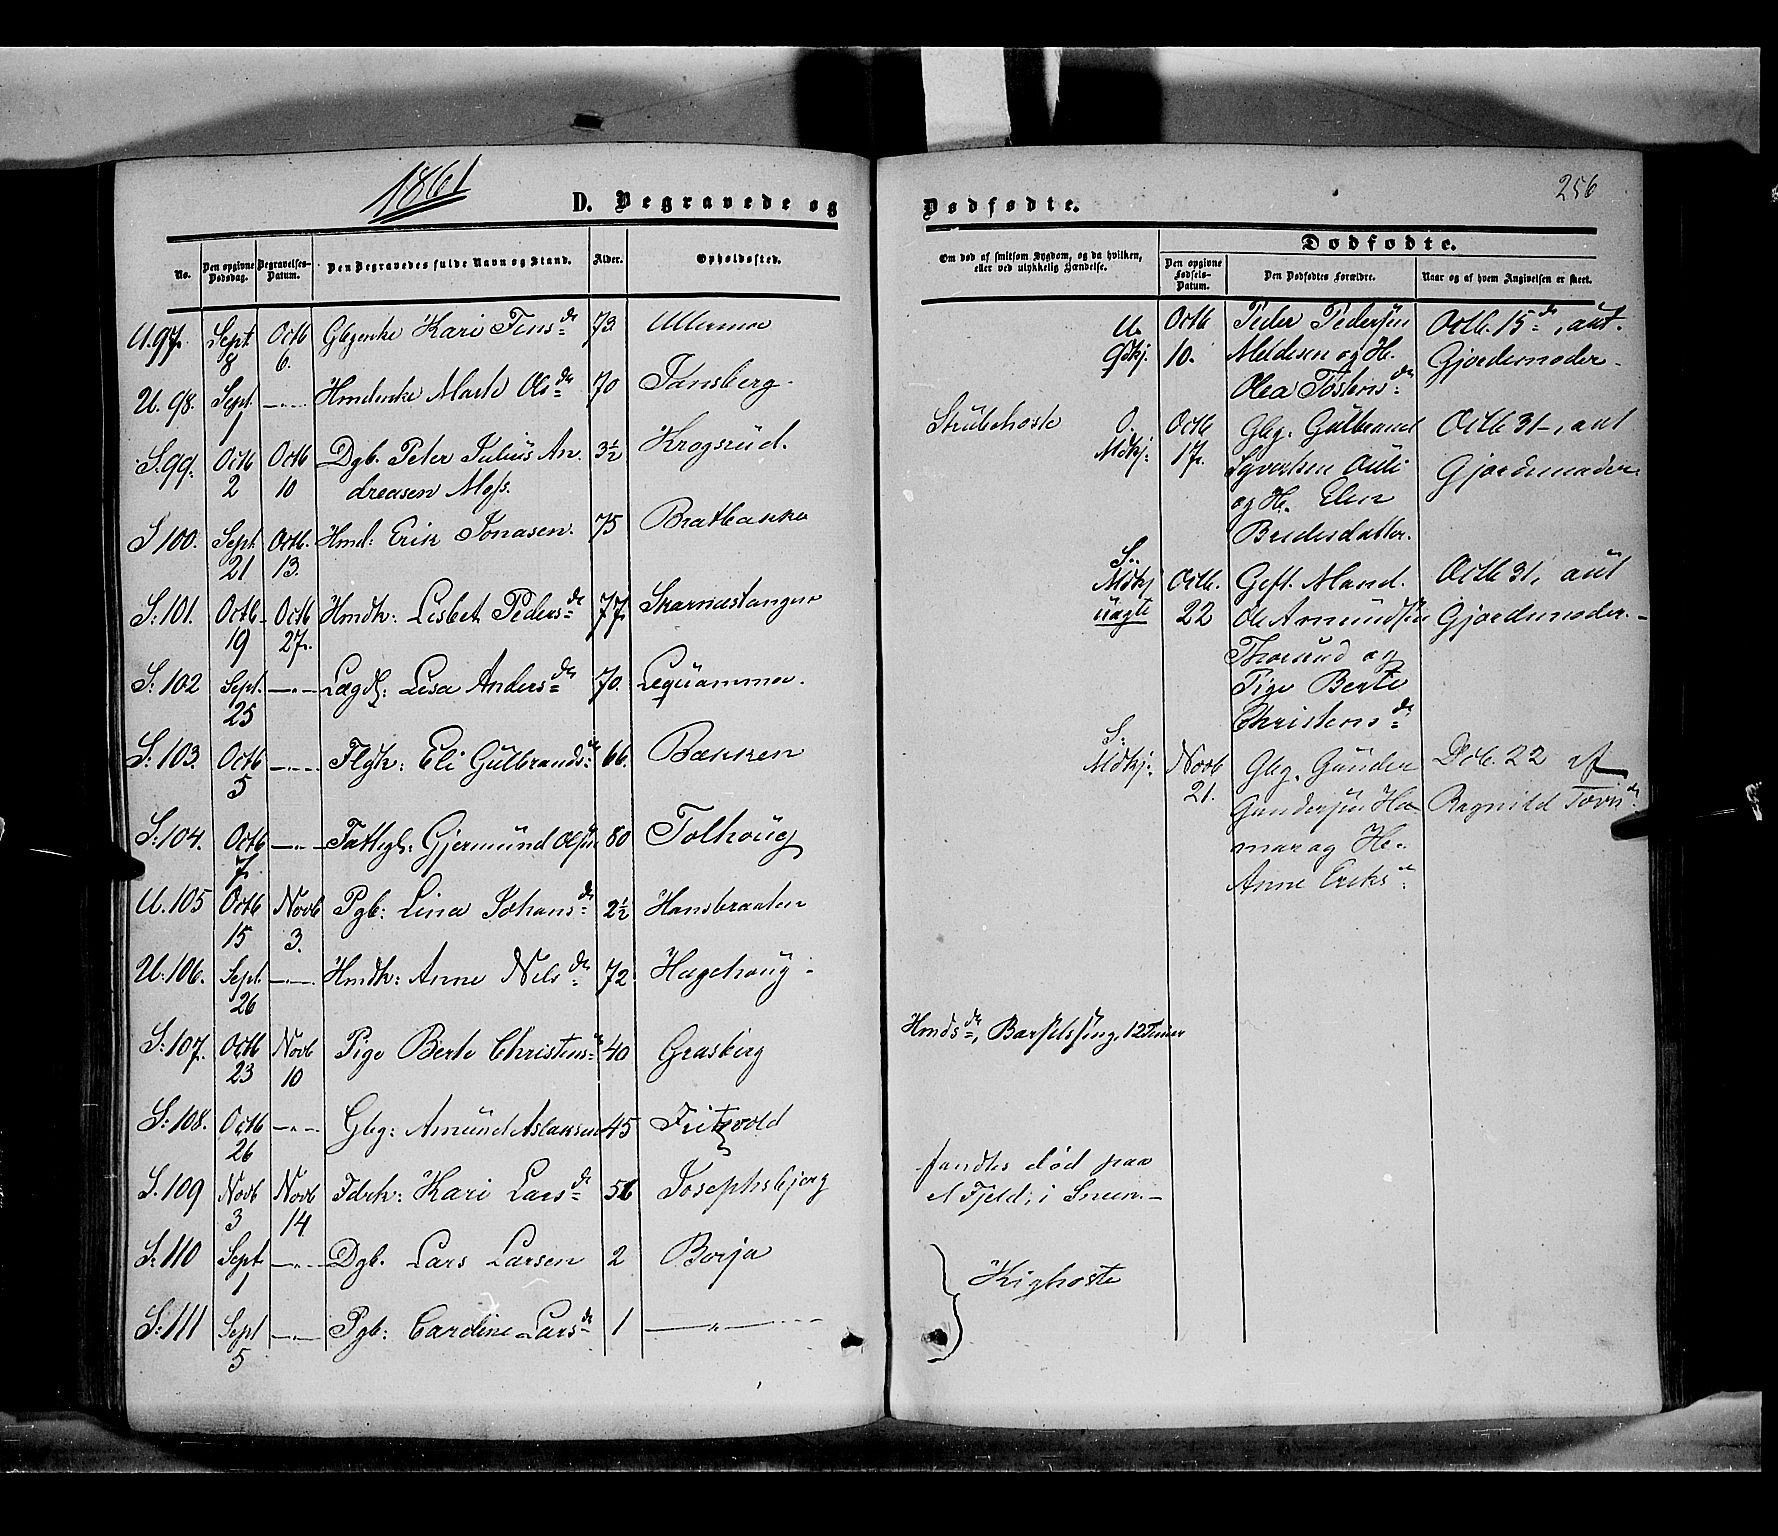 1861
D. Begravede og
No.
Den opgivne Dødsdag.
Begravelses-Datum.
Den Begravedes fulde Navn og Stand.
Alder.
Opholdssted.
U. 97. Sept 8 Octb 6. Kari Tens dr 73 Ullermoe
U. 98. Sept 1 —"— Marte Ols dr 70 Tansberg.
S. 99. Octb 2 Octb 10 Dgb. Peter Julius An- 3½ Krogsrud.
dreasen Moss.
S 100. Sept 21 Octb. 13. Hmd: Erik Jonasen. 75 Bratbakke
S: 101. Octb. 19 Octb 27. Hmdk: Lisbet Peders dr 77
S: 102 Sept. 25 —"— Lægdl: Lisa Anders dr 70.
S: 103. Octb 5 —"— Flgk: Eli Gulbrands dr 66. Bakken
S: 104. Octb 7. —"— Fattigl: Gjermund Olsen 80 Tolhoug
U. 105 Octb 15 Novb 3. Pgb: Lina Johans dr 2½ Hansbraaten
U: 106. Sept 26 —"— Hmdk: Anne Nils dr 72. Hagehoug
S: 107. Octb 23 Novb 10 Pige Berte Christens dr 40 Grasberg
S: 108. Octb 26 —"— Gbg: Amund Aslaksen 45 Fritzvold
S. 109 Novb 3 Novb 14 Fdrk: Kari Lars dr 51 Josephsbjerg
S: 110 Sept 1 —"— Dgb. Lars Larsen 2 Borja
S: 111 Sept 5 —"— Pgb: Caroline Lars dr 1 —"—
256
Dødfødte.
Om død af smitsom Sygdom, og da hvilken,
eller ved ulykkelig Hændelse.
Dødfødte.
Den opgivne Fødsels-Datum.
Den Dødfødtes Forældre.
Naar og af hvem Angivelsen er skeet.
U. Octb Peder Pedersen Octb. 15 de, ant.
Gdkj. 10. Meldesen og H. Gjordemoder.
Olea Tostens dr
Strubehoste
O. Octb Gbg. Gulbrand Octb 31–, ant
Mdkj. 17. Syvertsen Ouli Gjordemoder
og H. Elen
Bredesdatter.
S.
Mdkj Octb. Gift Mand. Octb 31, ant
uægte 22 Ole Amundsen Gjordemoder.
Thorud og
Pige Berte
Christens dr
S:
Mdkj. Novb Gbg. Gunder Dcb. 22 af
21. Gundersen Ha- Ragnild Tovs dr
mar og H.
Anne Eriks dr
Hmds dr, Barselseng, 12 Timer
fandtes død paa
et Fjeld, i Sneen.
Kighoste